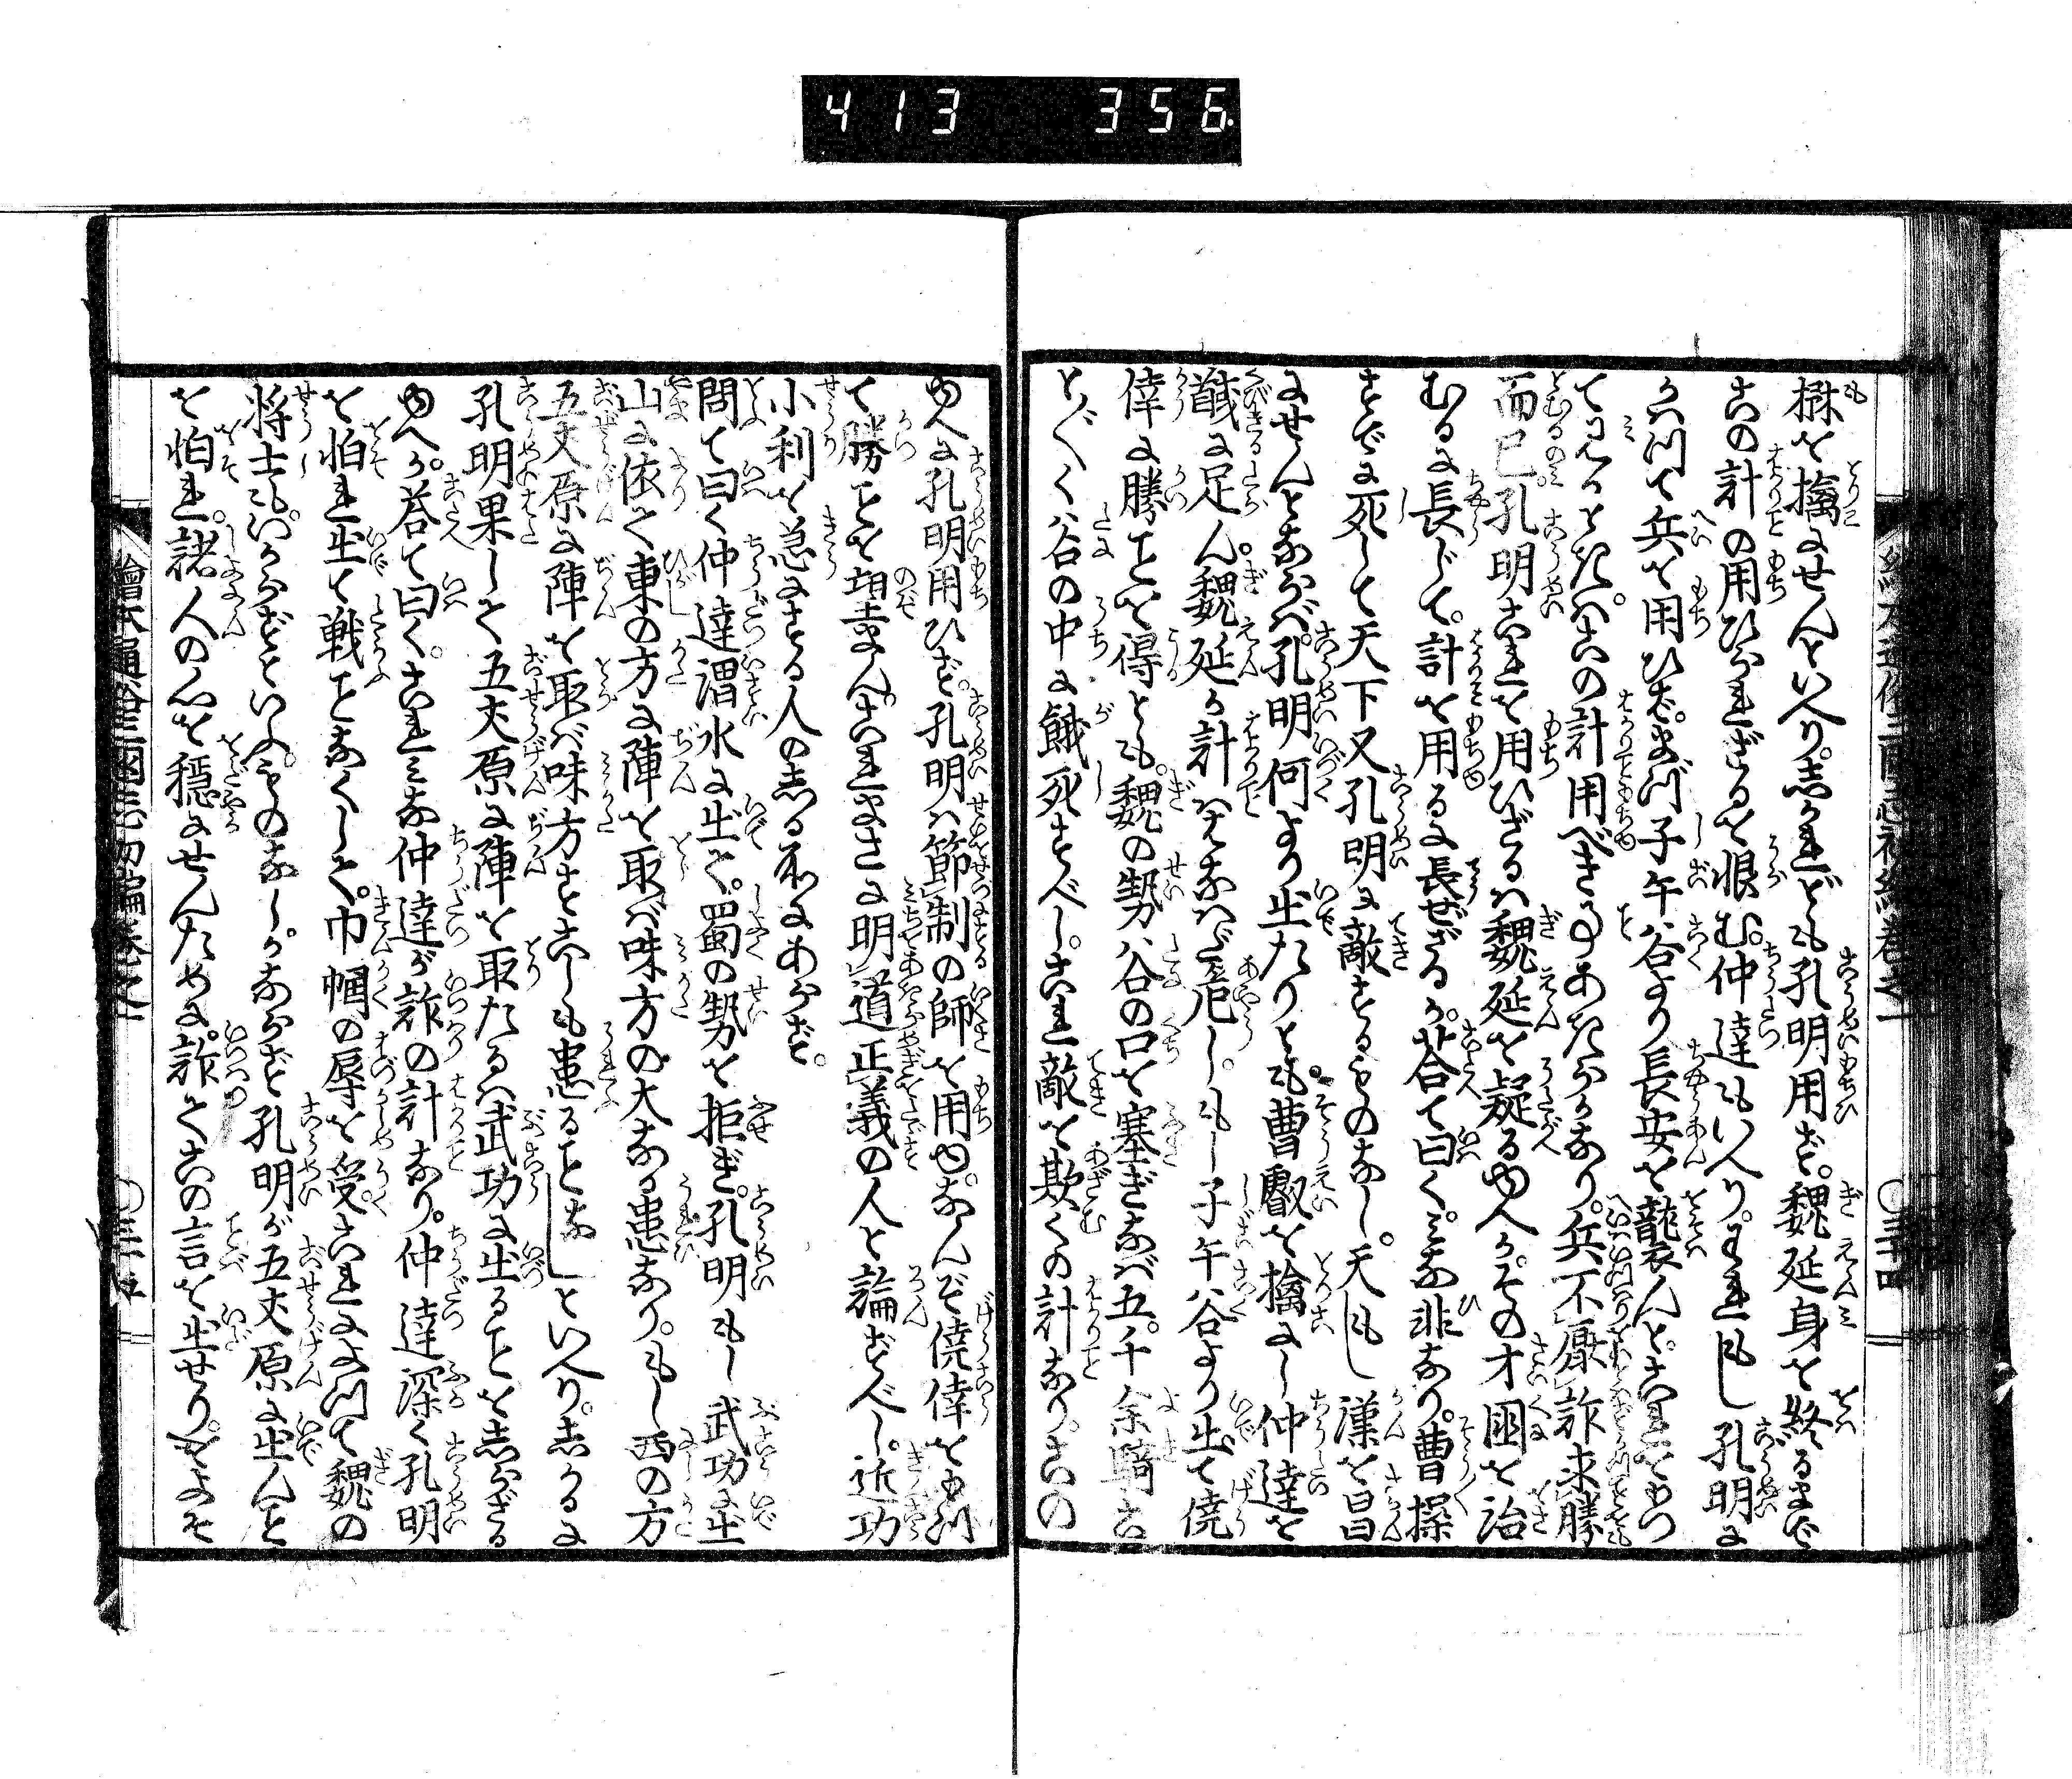 413 356
楙を擒にせんといへり。志かれども孔明用ず。魏延身を終るまで
此の計の用ひられざるを恨む。仲達もいへり。われもし孔明に
かはつて兵を用ひば。まづ子午谷より長安を襲んと。これをもつ
て見るときは。この計用べき事あきらかなり。兵不厭詐求勝
而已。孔明これを用ひざるは魏延を疑るゆへか。その才国を治
むるに長じて。計を用るに長ぜざるか。荅て曰くみな非なり。曹操
すでに死して天下又孔明に敵するものなし。天もし漢を昌
にせんとならば。孔明何より出たりとも。曹叡を擒にし仲達を
馘に足ん。魏延が計はなはだ危し。もし子午谷より出て僥
倖に勝ことを得とも。魏の勢谷の口を塞ぎなば五千余騎は
ことごとく谷の中に餓死すべし。これ敵を欺くの計なり。この
ゆへに孔明用ひず。孔明は節制の師を用ゆ。なんぞ僥倖をもつ
て勝ことを望まん。これまさに明道正義の人と論ずべし。近功
小利を急にする人の志る所にあらず。
問て曰く仲達渭水に出て。蜀の勢を拒ぎ。孔明もし武功に出
山に依て東の方に陣を取ば味方の大なる患なり。もし西の方
五丈原に陣を取ば味方すこしも患ることなしといへり。志かるに
孔明果して五丈原に陣を取たるは武功に出ることを志らざる
ゆへか。荅て曰く。これみな仲達が詐の計なり。仲達深く孔明
を怕れ出て戦ことなくして。巾幗の辱を受。これによつて魏の
将士もいからずといふものなし。かならず孔明が五丈原に出んと
を怕れ。諸人の心を穏にせんために。詐てこの言を出せり。およそ
繪本通俗三國志初編巻之一
〇三十四
繪本通俗三國志初編巻之一
〇三十五